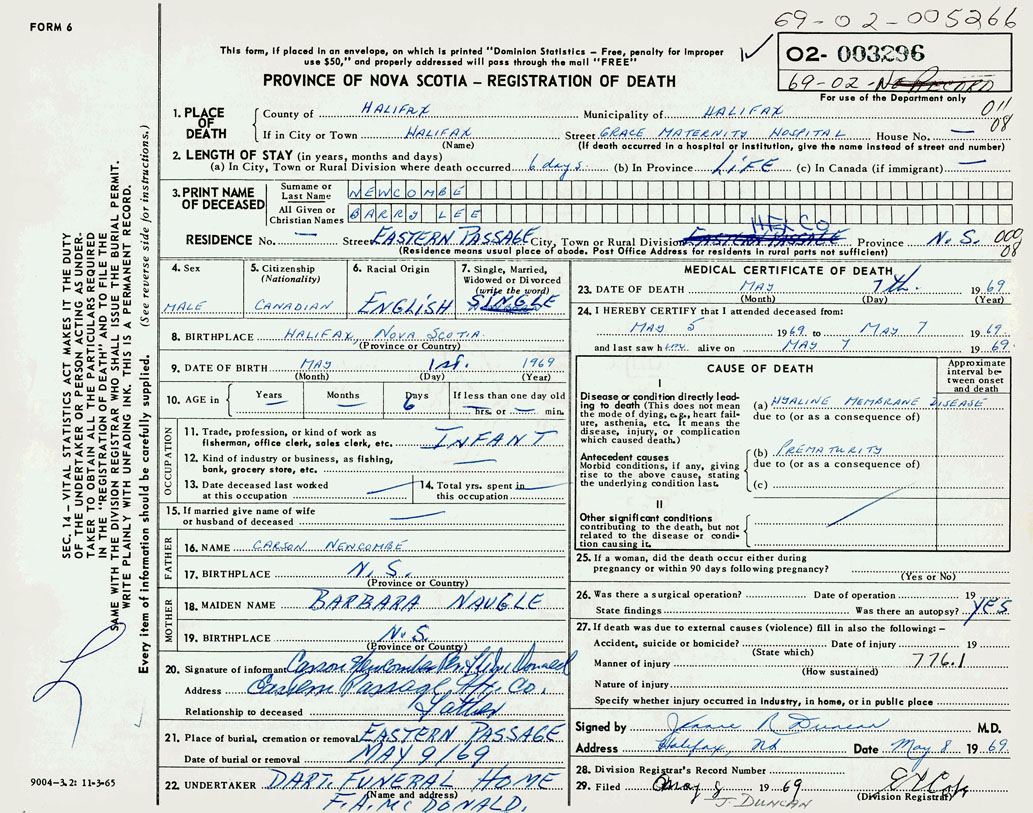 FORM 6
69-02-005266
This form, if placed in an envelope, on which is printed "Dominion Statistics – Free, penalty for improper
use $50," and properly addressed will pass through the mail "FREE"
02- 003296
69-02- No RECORD
For use of the Department only
PROVINCE OF NOVA SCOTIA – REGISTRATION OF DEATH
011
08
1. PLACE OF DEATH
County of HALIFAX Municipality of HALIFAX
If in City or Town HALIFAX Street GRACE MATERNITY HOSPITAL House No. —
(Name) (If death occurred in a hospital or institution, give the name instead of street and number)
2. LENGTH OF STAY (in years, months and days)
(a) In City, Town or Rural Division where death occurred 6 days. (b) In Province LIFE (c) In Canada (if immigrant) —
3. PRINT NAME OF DECEASED
Surname or Last Name NEWCOMBE
All Given or Christian Names BARRY LEE
RESIDENCE No. — Street EASTERN PASSAGE City, Town or Rural Division EASTERN PASSAGE HFX CO Province N.S. 009
08
(Residence means usual place of abode. Post Office Address for residents in rural parts not sufficient)
4. Sex
MALE
5. Citizenship
(Nationality)
CANADIAN
6. Racial Origin
ENGLISH
7. Single, Married,
Widowed or Divorced
(write the word)
SINGLE
8. BIRTHPLACE HALIFAX, NOVA SCOTIA
(Province or Country)
9. DATE OF BIRTH MAY 1st. 1969
(Month) (Day) (Year)
10. AGE in
Years —
Months —
Days 6
If less than one day old
— hrs. or — min.
OCCUPATION
11. Trade, profession, or kind of work as
fisherman, office clerk, sales clerk, etc. INFANT
12. Kind of industry or business, as fishing,
bank, grocery store, etc. —
13. Date deceased last worked
at this occupation
14. Total yrs. spent in
this occupation
15. If married give name of wife
or husband of deceased —
FATHER
16. NAME CARSON NEWCOMBE
17. BIRTHPLACE N.S.
(Province or Country)
MOTHER
18. MAIDEN NAME BARBARA NAUGLE
19. BIRTHPLACE N.S.
(Province or Country)
20. Signature of informant Carson Newcombe
Address Eastern Passage, Hfx. Co.
Relationship to deceased Father
21. Place of burial, cremation or removal EASTERN PASSAGE
Date of burial or removal MAY 9/69
22. UNDERTAKER DART. FUNERAL HOME
(Name and address)
F.A. McDONALD.
MEDICAL CERTIFICATE OF DEATH
23. DATE OF DEATH MAY 7th. 1969
(Month) (Day) (Year)
24. I HEREBY CERTIFY that I attended deceased from:
MAY 5 1969 to MAY 7 1969
and last saw him alive on MAY 7 1969
CAUSE OF DEATH
Approximate
interval be-
tween onset
and death
I
Disease or condition directly lead-
ing to death (This does not mean
the mode of dying, e.g., heart fail-
ure, asthenia, etc. It means the
disease, injury, or complication
which caused death.)
(a) HYALINE MEMBRANE DISEASE
due to (or as a consequence of)
Antecedent causes
Morbid conditions, if any, giving
rise to the above cause, stating
the underlying condition last.
(b) PREMATURITY
due to (or as a consequence of)
(c)
II
Other significant conditions
contributing to the death, but not
related to the disease or condi-
tion causing it.
25. If a woman, did the death occur either during
pregnancy or within 90 days following pregnancy?
(Yes or No)
26. Was there a surgical operation? Date of operation 19
State findings Was there an autopsy? YES
27. If death was due to external causes (violence) fill in also the following: –
Accident, suicide or homicide? Date of injury 19
(State which)
Manner of injury 776.1
(How sustained)
Nature of injury
Specify whether injury occurred in industry, in home, or in public place
Signed by R Duncan M.D.
Address Halifax, NS Date May 8 1969
28. Division Registrar's Record Number
29. Filed May 8 1969
(Division Registrar)
J. DUNCAN
SEC. 14 – VITAL STATISTICS ACT MAKES IT THE DUTY
OF THE UNDERTAKER OR PERSON ACTING AS UNDER-
TAKER TO OBTAIN ALL THE PARTICULARS REQUIRED
IN THE "REGISTRATION OF DEATH" AND TO FILE THE
SAME WITH THE DIVISION REGISTRAR WHO SHALL ISSUE THE BURIAL PERMIT.
WRITE PLAINLY WITH UNFADING INK. THIS IS A PERMANENT RECORD.
Every item of information should be carefully supplied. (See reverse side for instructions.)
9004-3.2: 11-3-65